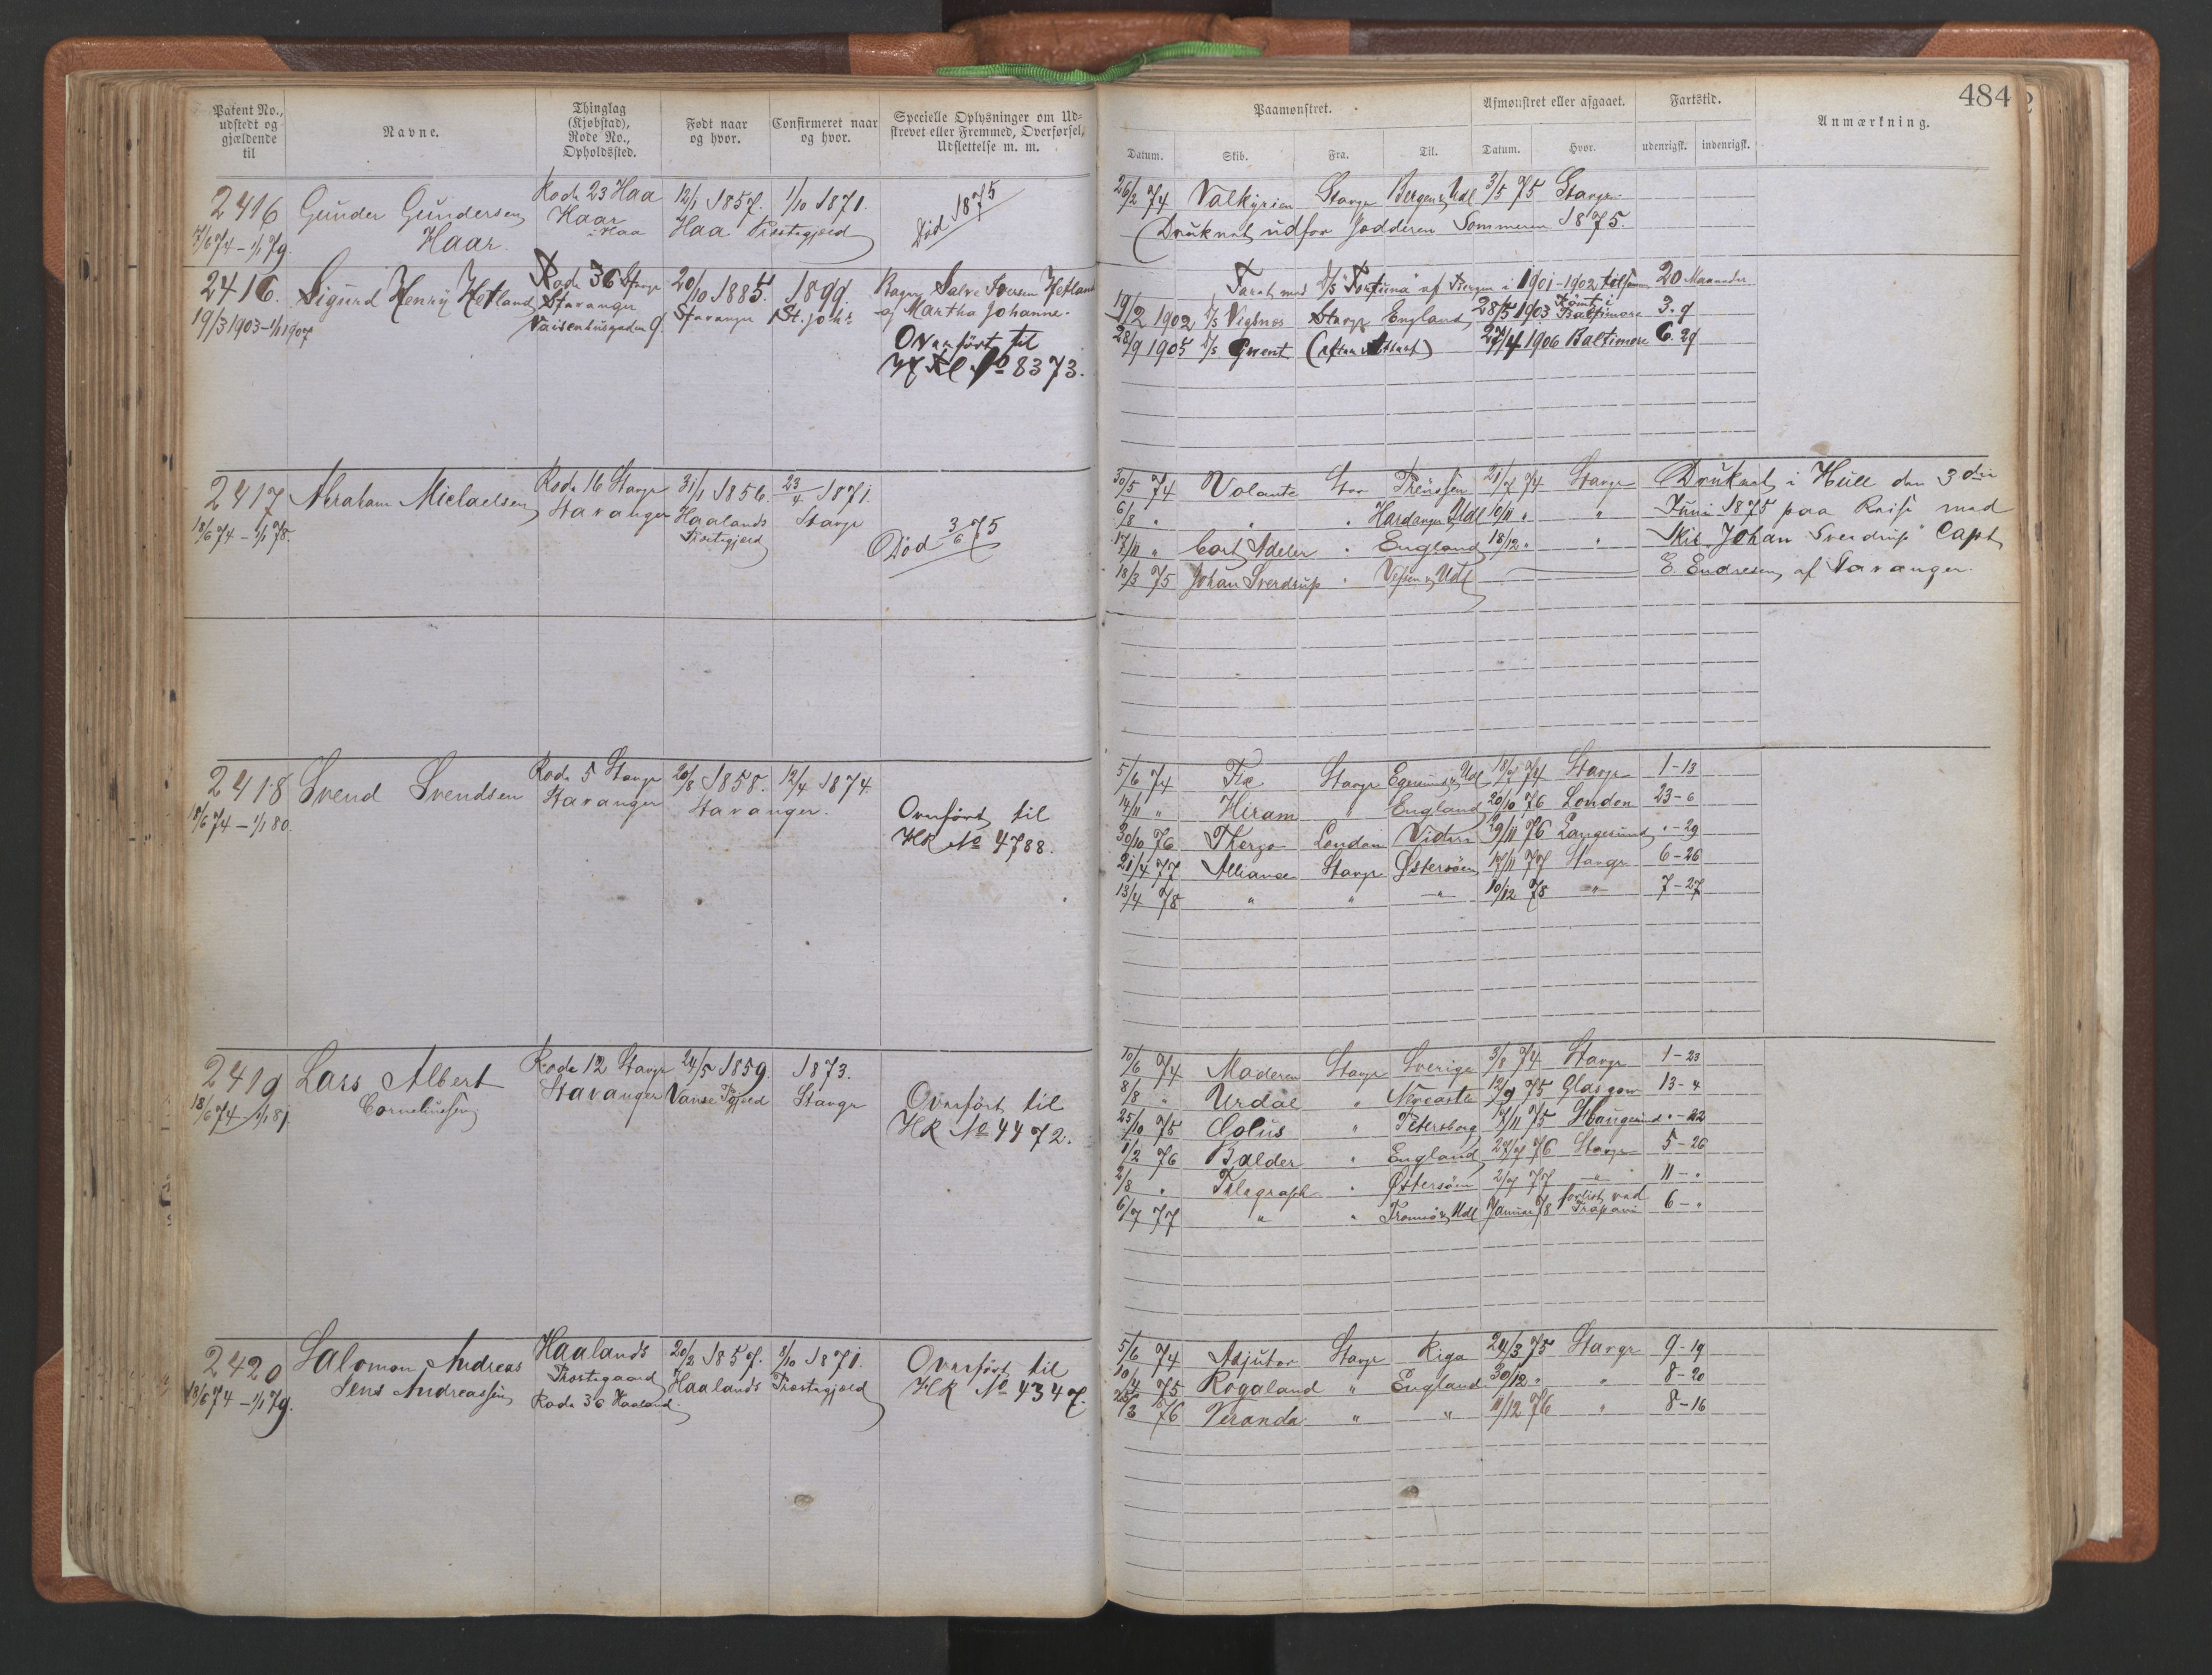 484
Patent No., udstedt og gjældende til
Navne.
Thinglag (Kjøbstad), Rode No., Opholdssted.
Født naar og hvor.
Confirmeret naar og hvor.
Specielle Oplysninger om Udskrevet eller Fremmed, Overførsel, Udslettelse m. m.
Paamønstret.
Afmønstret eller afgaaet.
Fartstid.
Anmærkning.
Datum. Skib. Fra. Til. Datum. Hvor. udenrigsk. indenrigsk.
2416 Gunder Gundersen Rode 23 Haa 12/1 1857. 1/10 1871.
7/6 74 - 1/1 79. Haar. Haar i Haa Haa Præstegjæld Død 1875
26/2 74 Valkyrien Stavgr Bergen & Udl 3/5 75 Stavgr
Druknet udfor Jædderen Sommeren 1875.
2416. Sigurd Henry Hetland Rode 36 Stavgr 20/10 1885. 1899.
19/3 1903 - 1/1 1907 Stavanger Vaisenhusgaden 9. Stavanger St. Joh.
Salve Iversen Hetland
af Martha Johanne.
Overført til
No 8373.
i 1901-1902 tilsammen 20 Maaneder
19/2 1902 D/s Vigsnes Stavgr England 28/5 1903 Rømt i Baltimore 3. 9
28/9 1905 D/s Gwent (efter Attest) 27/4 1906 Baltimore 6. 29
2417 Abraham Michaelsen Rode 16 Stavgr 31/1 1856. 23/4 1871.
18/6 74 - 1/1 78. Stavanger Haalands Præstegjæld Stavgr
Død 3/6 75
30/5 74 Volante Stav Preussen 21/7 74 Stavgr
6/8 " " " Hardanger & Udl 10/11 " "
17/11 " Cort Adeler " England 18/12 " "
18/3 75 Johan Sverdrup " Vefsen & Udl
Druknet i Hull den 3die
Juni 1875 paa Reise med
Skib Johan Sverdrup" Capt
E. Endresen af Stavanger.
2418 Svend Svendsen Rode 5 Stavgr 20/8 1858. 12/4 1874.
18/6 74 - 1/1 80. Stavanger Stavanger.
Overført til
HR No 4788.
5/6 74 Stavgr Egersund & Udl 18/7 74 Stavgr 1-13
14/11 " Hiram " England 20/10 76 London 23-6
30/10 76 London 29/11 76 Langesund "-29
21/4 77 Alliance Stavgr Østersøen 17/11 77 Stavgr 6-26
13/4 78 " " " 10/12 78 " 7-27
2419 Lars Albert Rode 12 Stavgr 24/5 1859. 1873.
18/6 74 - 1/1 81. Corneliussen Stavanger Vanse Pgjæld Stavgr
Overført til
HR No 4472.
10/6 74 Moderen Stavgr Sverige 3/8 74 Stavgr 1-23
8/8 " Urdal " Newcastle 12/9 75 Glasgow 13-4
25/10 75 " Petersborg 17/11 75 Haugesund "-22
1/2 76 Balder " England 27/7 76 Stavgr 5-26
2/8 " Telegraph " Østersøen 2/7 77 " 11-"
6/7 77 " " Tromsø & Udl Januar 78 forlist ved Trapani 6-"
2420 Salomon Andreas Haalands 20/2 1857. 8/10 1871.
18/6 74 - 1/1 79. Jens Andreassen Præstegaard Haalands Præstegjæld
Rode 36 Haaland.
Overført til
HR No 4347.
5/6 74 Adjutor Stavgr Riga 24/3 75 Stavgr 9-19
10/4 75 Rogaland " England 30/12 " " 8-20
25/3 76 Veranda " " 11/12 76 " 8-16